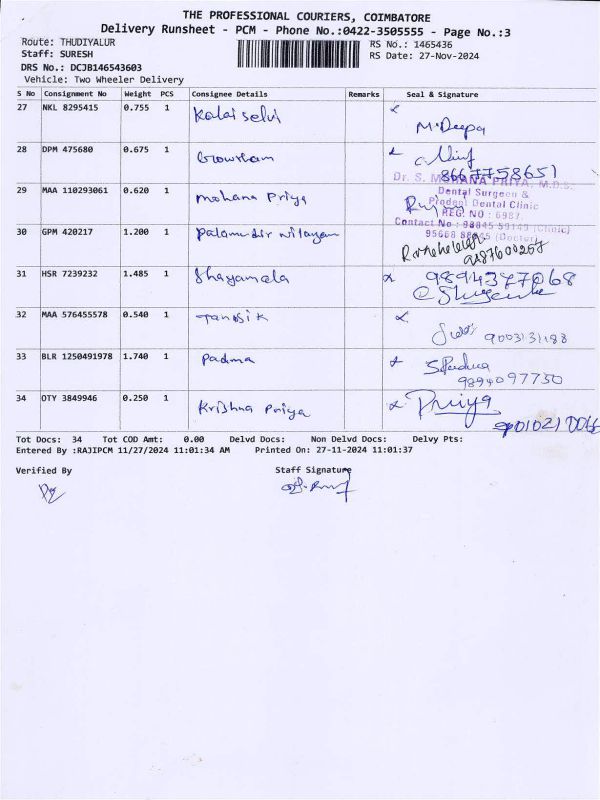 THE PROFESSIONAL COURIERS, COIMBATORE
Delivery Runsheet - PCM - Phone No.:0422-3505555 - Page No.:3
Route: THUDIYALUR RS No.: 1465436
Staff: SURESH RS Date: 27-Nov-2024
DRS No.: DCJB146543603
Vehicle: Two Wheeler Delivery
S No Consignment No Weight PCS Consignee Details Remarks Seal & Signature
27 NKL 8295415 0.755 1 Kalai selvi M.Deepa
28 DPM 475680 0.675 1 Gowsham 8667758651
29 MAA 110293061 0.620 1 Mohana Priya
Dr. S. MOHANA PRIYA, M.D.S.
Dental Surgeon &
Prodent Dental Clinic
REG. NO : 6987
Contact No : 98845 59149 (Clinic)
(Doctor)
30 GPM 420217 1.200 1
31 HSR 7239232 1.485 1 Shayamala 9894377068
32 MAA 576455578 0.540 1 Tanosik 9003131188
33 BLR 1250491978 1.740 1 Padma S.Padma
9894097750
34 OTY 3849946 0.250 1 Krishna Priya Priya
Tot Docs: 34 Tot COD Amt: 0.00 Delvd Docs: Non Delvd Docs: Delvy Pts:
Entered By :RAJIPCM 11/27/2024 11:01:34 AM Printed On: 27-11-2024 11:01:37
Verified By Staff Signature